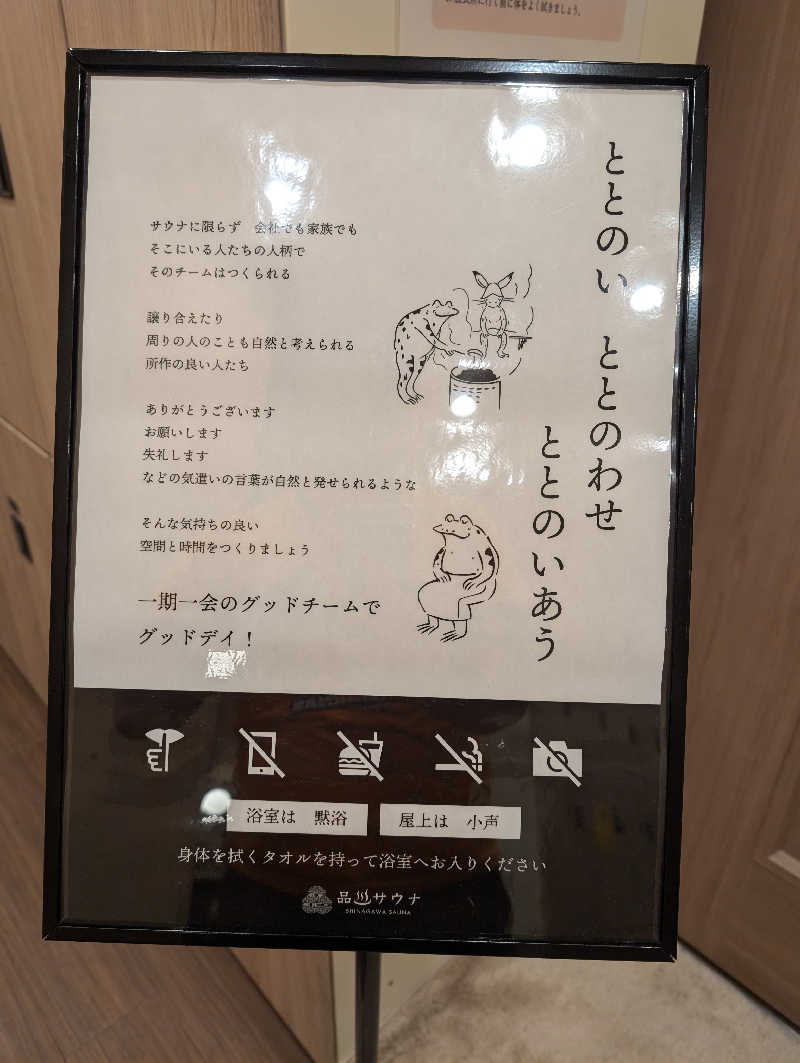 体をよく拭きましょう。
ととのい ととのわせ
ととのいあう
サウナに限らず 会社でも家族でも
そこにいる人たちの人柄で
そのチームはつくられる
譲り合えたり
周りの人のことも自然と考えられる
所作の良い人たち
ありがとうございます
お願いします
失礼します
などの気遣いの言葉が自然と発せられるような
そんな気持ちの良い
空間と時間をつくりましょう
一期一会のグッドチームで
グッドデイ！
浴室は 黙浴
屋上は 小声
身体を拭くタオルを持って浴室へお入りください
品川サウナ
SHINAGAWA SAUNA